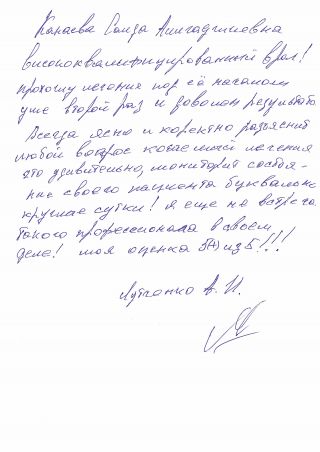 Канаева Саида Алигаджиевна
высококвалифицированный врач!
прохожу лечение под её началом
уже второй раз и доволен результатом
Всегда ясно и коректно разъяснит
любой вопрос касаемый лечения
что удивительно, мониторит состоя-
ние своего пациента буквально
круглые сутки! я еще не встречал
такого профессионала в своем
деле! моя оценка 5(+) из 5!!!
А. И.